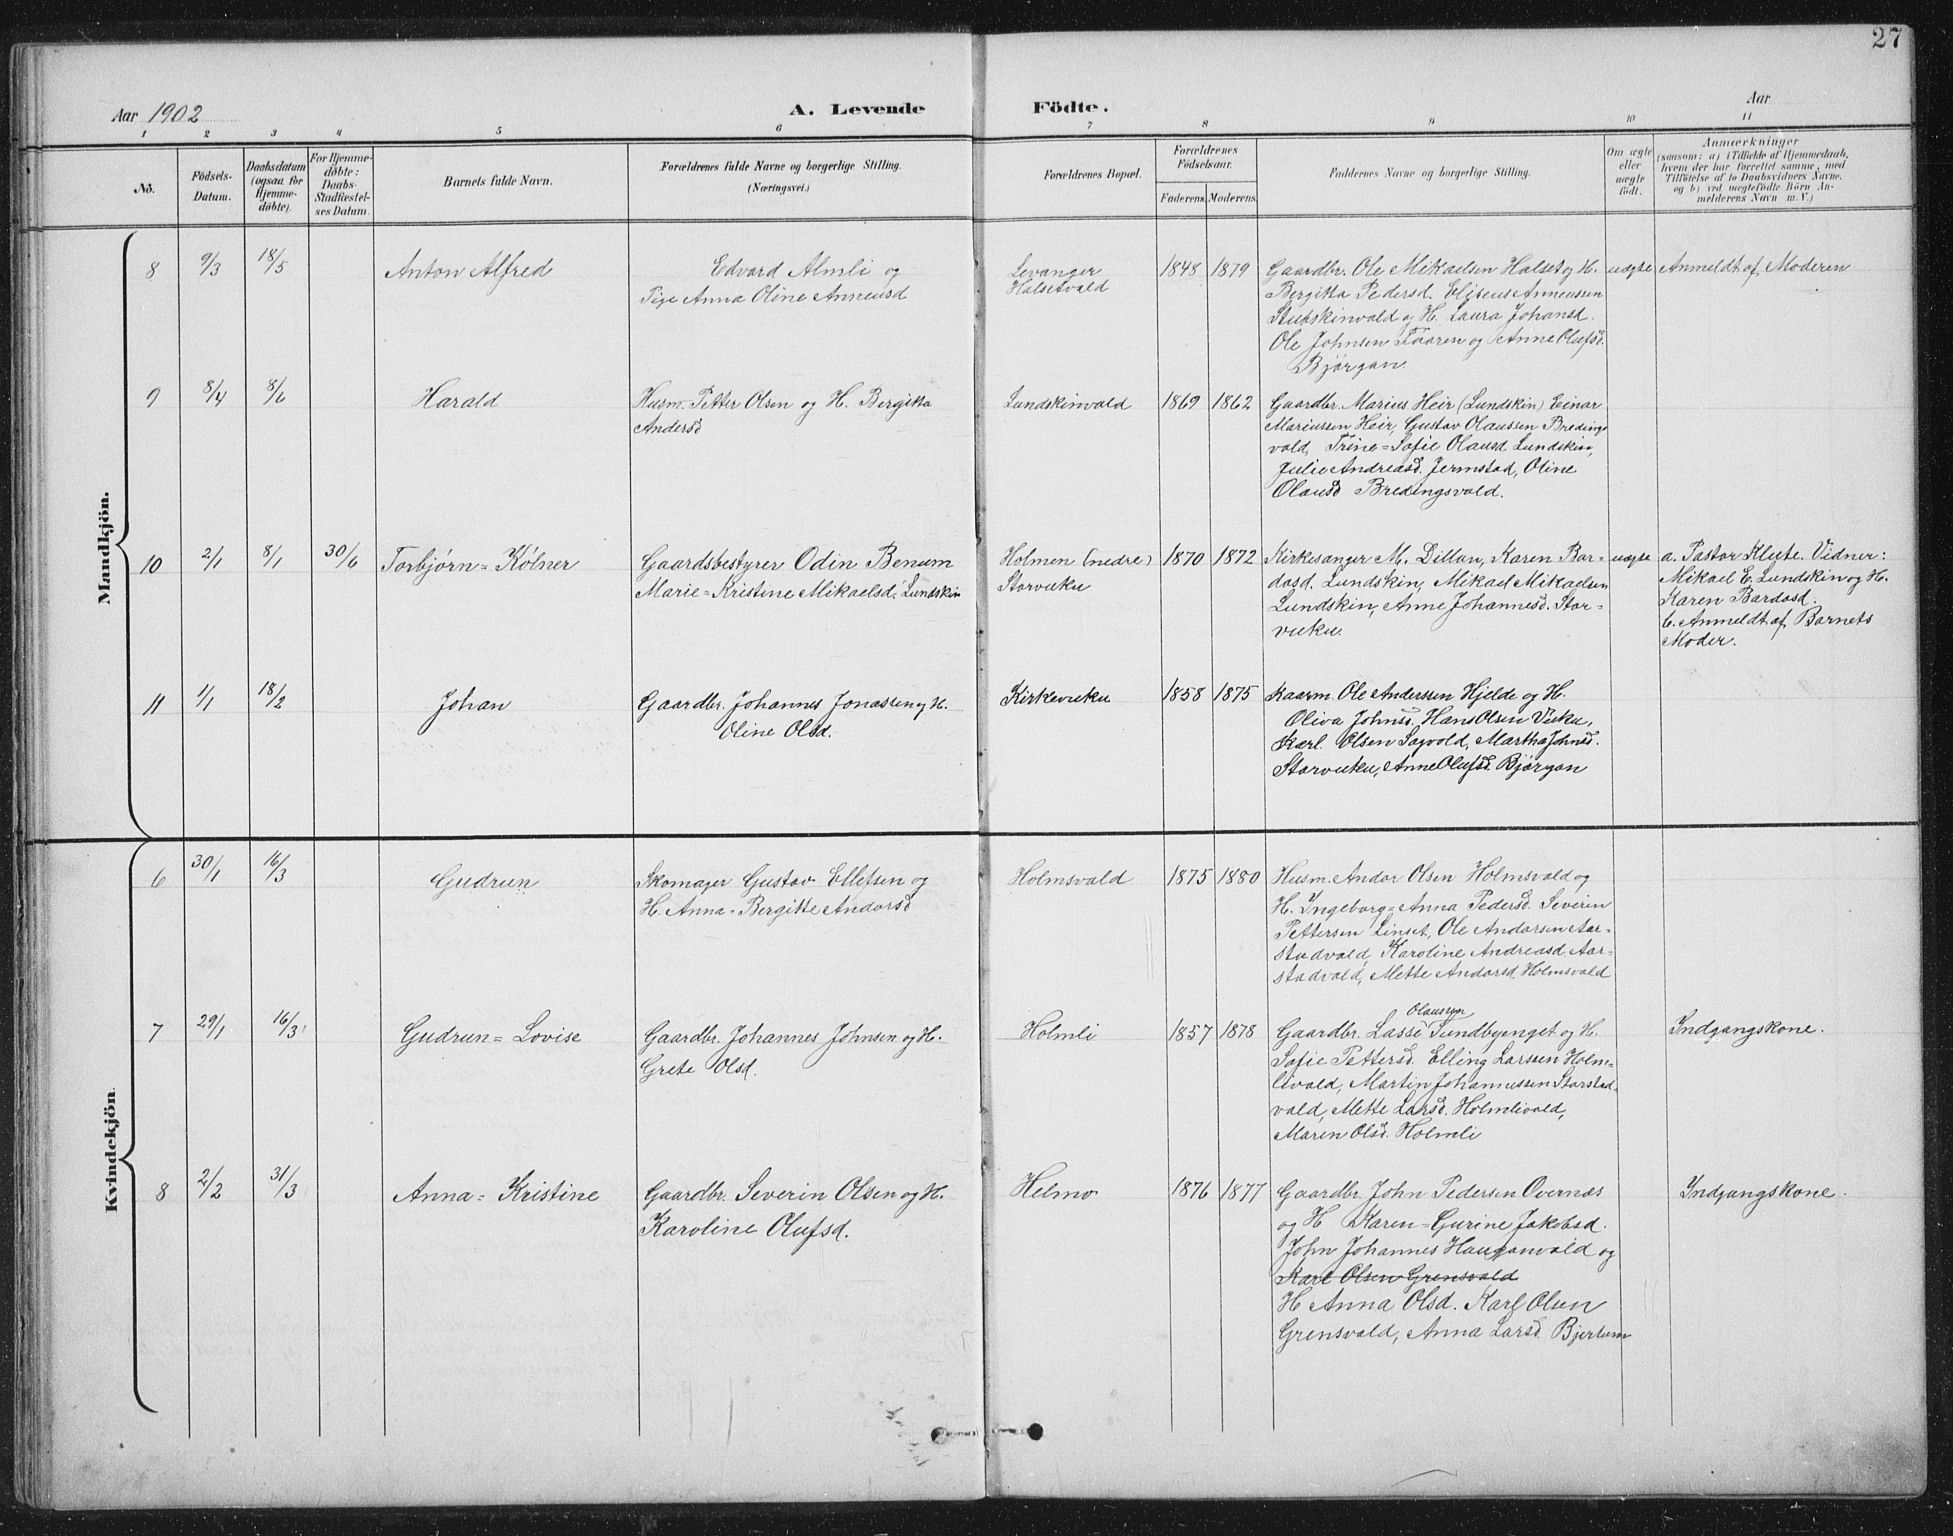 27
Aar 1902
A. Levende
Födte.
Aar
1 2 3 4 5 6 7 8 9 10 11
No.
Födsels-
Datum.
Daabsdatum
(ogsaa for
Hjemme-
döbte).
For Hjemme-
döbte:
Daabs-
Stadfæstel-
ses Datum.
Barnets fulde Navn.
Forældrenes fulde Navne og borgerlige Stilling.
(Næringsvei.)
Forældrenes Bopæl.
Forældrenes
Födselsaar.
Faderens. Moderens.
Faddernes Navne og borgerlige Stilling.
Om ægte
eller
uægte
födt.
Anmærkninger
(saasom: a) i Tilfælde af Hjemmedaab,
hvem der har forrettet samme, med
Tilföielse af to Daabsvidners Navne.
og b) ved uægtefödte Börn An-
melderens Navn m. V.)
Mandkjön.
8 9/3 18/5 Anton Alfred
Edvard Almli og
Pige Anna Oline Anneusd
Levanger
Halsetvald
1848 1879
Gaardbr. Ole Mikaelsen Halset og H.
Bergitta Pedersd. Eliseus Anneussen
Stubskinvald og H. Laura Johansd.
Ole Johnsen Faaren og Anne Olufsd.
Bjørgan.
uægte
Anmeldt af Moderen
9 8/4 8/6 Harald
Husm. Petter Olsen og H. Bergitta
Andersd
Lundskinvald
1869 1862
Gaardbr. Marius Heir (Lundskin) Einar
Mariussen Heir, Gustav Olaussen Bredings
vald, Trine=Sofie Olausd Lundskin,
Julie Andreasd. Jermstad, Oline
Olausd Bredingsvald.
10 2/1 8/1 30/6 Torbjørn=Kölner
Gaardsbestyrer Odin Benum
Marie=Kristine Mikaelsd. Lundskin
Holmen (nedre)
Storvuku
1870 1872
Kirkesanger M. Dillan, Karen Bar-
dosd. Lundskin, Mikael Mikaelsen
Lundskin, Anne Johannesd. Stor-
vuku.
uægte
a. Pastor Klüte. Vidner:
Mikael E. Lundskin og H.
Karen Bardosd.
b. Anmeldt af Barnets
Moder.
11 1/1 18/2 Johan
Gaardbr. Johannes Jonassen og H.
Oline Olsd.
Kirkevuku
1858 1875
Kaarm. Ole Anderssen Hjelde og H.
Oliva Johnsd. Hans Olsen Vuku,
Karl Olsen Sagvold, Martha Johnsd.
Storvuku, Anne Olufsd. Bjørgan
Kvindekjön
6 30/1 16/3 Gudrun
Skomager Gustav Ellefsen og
H. Anna=Bergitte Andorsd
Holmsvald
1875 1880
Husm. Andor Olsen Holmsvald og
H. Ingeborg=Anna Pedersd. Severin
Pettersen Linset, Ole Andorsen Aar-
stadvald, Karoline Andreasd. Aar-
stadvald, Mette Andorsd. Holmsvald
7 29/1 16/3 Gudrun=Lovise
Gaardbr. Johannes Johnsen og H.
Grete Olsd.
Holmli
1857 1878
Olaussen
Gaardbr. Lasse Sundbyenget og H.
Sofie Pettersd. Elling Larssen Holm-
livald, Martin Johannessen Storstad-
vald, Mette Larsd. Holmlivald,
Maren Olsd. Holmli
Indgangskone.
8 2/2 31/3 Anna=Kristine
Gaardbr. Severin Olsen og H.
Karoline Olufsd.
Helmo
1876 1877
Gaardbr. John Pedersen Overnæs
og H Karen=Gurine Jakobsd.
John Johannes Hauganvald og
Karl Olsen Grensvald
H Anna Olsd. Karl Olsen
Grensvald, Anna Larsd. Bjertum
Indgangskone.